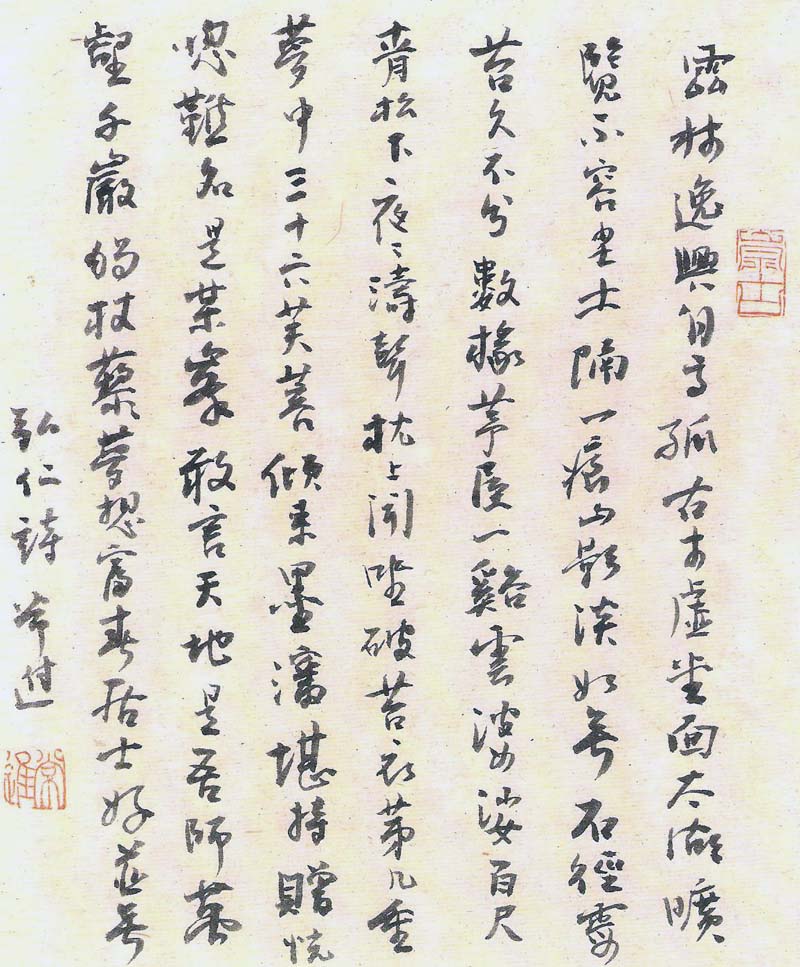 雲林逸興自高孤古木虛堂面太湖曠
覽不容塵土隔一痕山影淡如無石徑靈
苔久不分數椽茅屋一谿雲婆娑百尺
青松下夜〻濤聲枕上聞坐破苔衣第几重
夢中三十六芙蓉傾來墨瀋堪持贈恍
惚難名是某峯敢言天地是吾師萬
壑千巖獨杖藜夢想富春居士好並無
弘仁詩 常進
常進